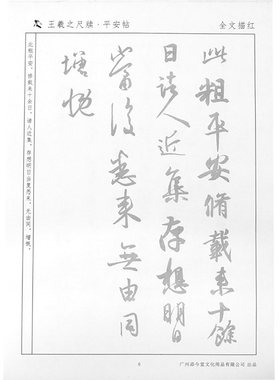 王羲之尺牍·平安帖
全文描红
此粗平安脩載来十餘
日諸人近集存想明日
當復悉来無由同
增慨
此粗平安，修载来十余日，诸人近集，存想明日当复悉来，无由同，增慨。
6
广州品今堂文化用品有限公司 出品